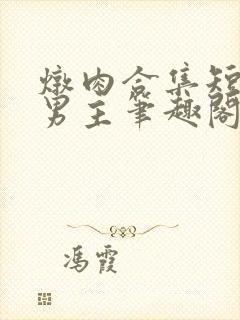 燉肉合集短
男主笔趣阁
冯霞